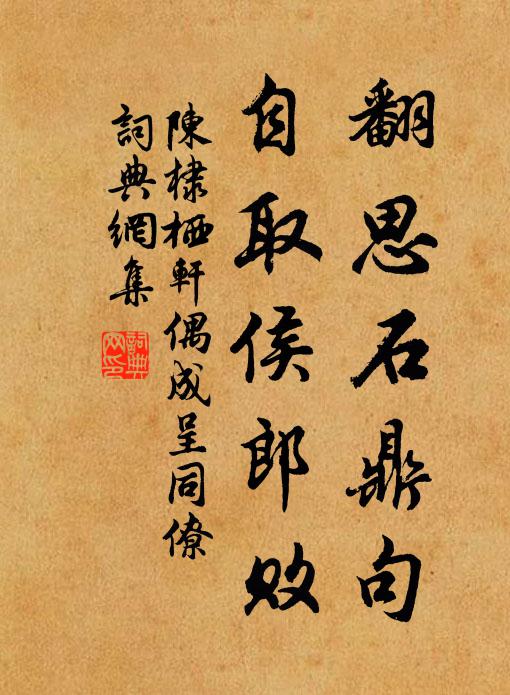 翻思石鼎句
自取侯郎败
陳棣栖軒偶成呈同僚
詞典網集
詞典网印